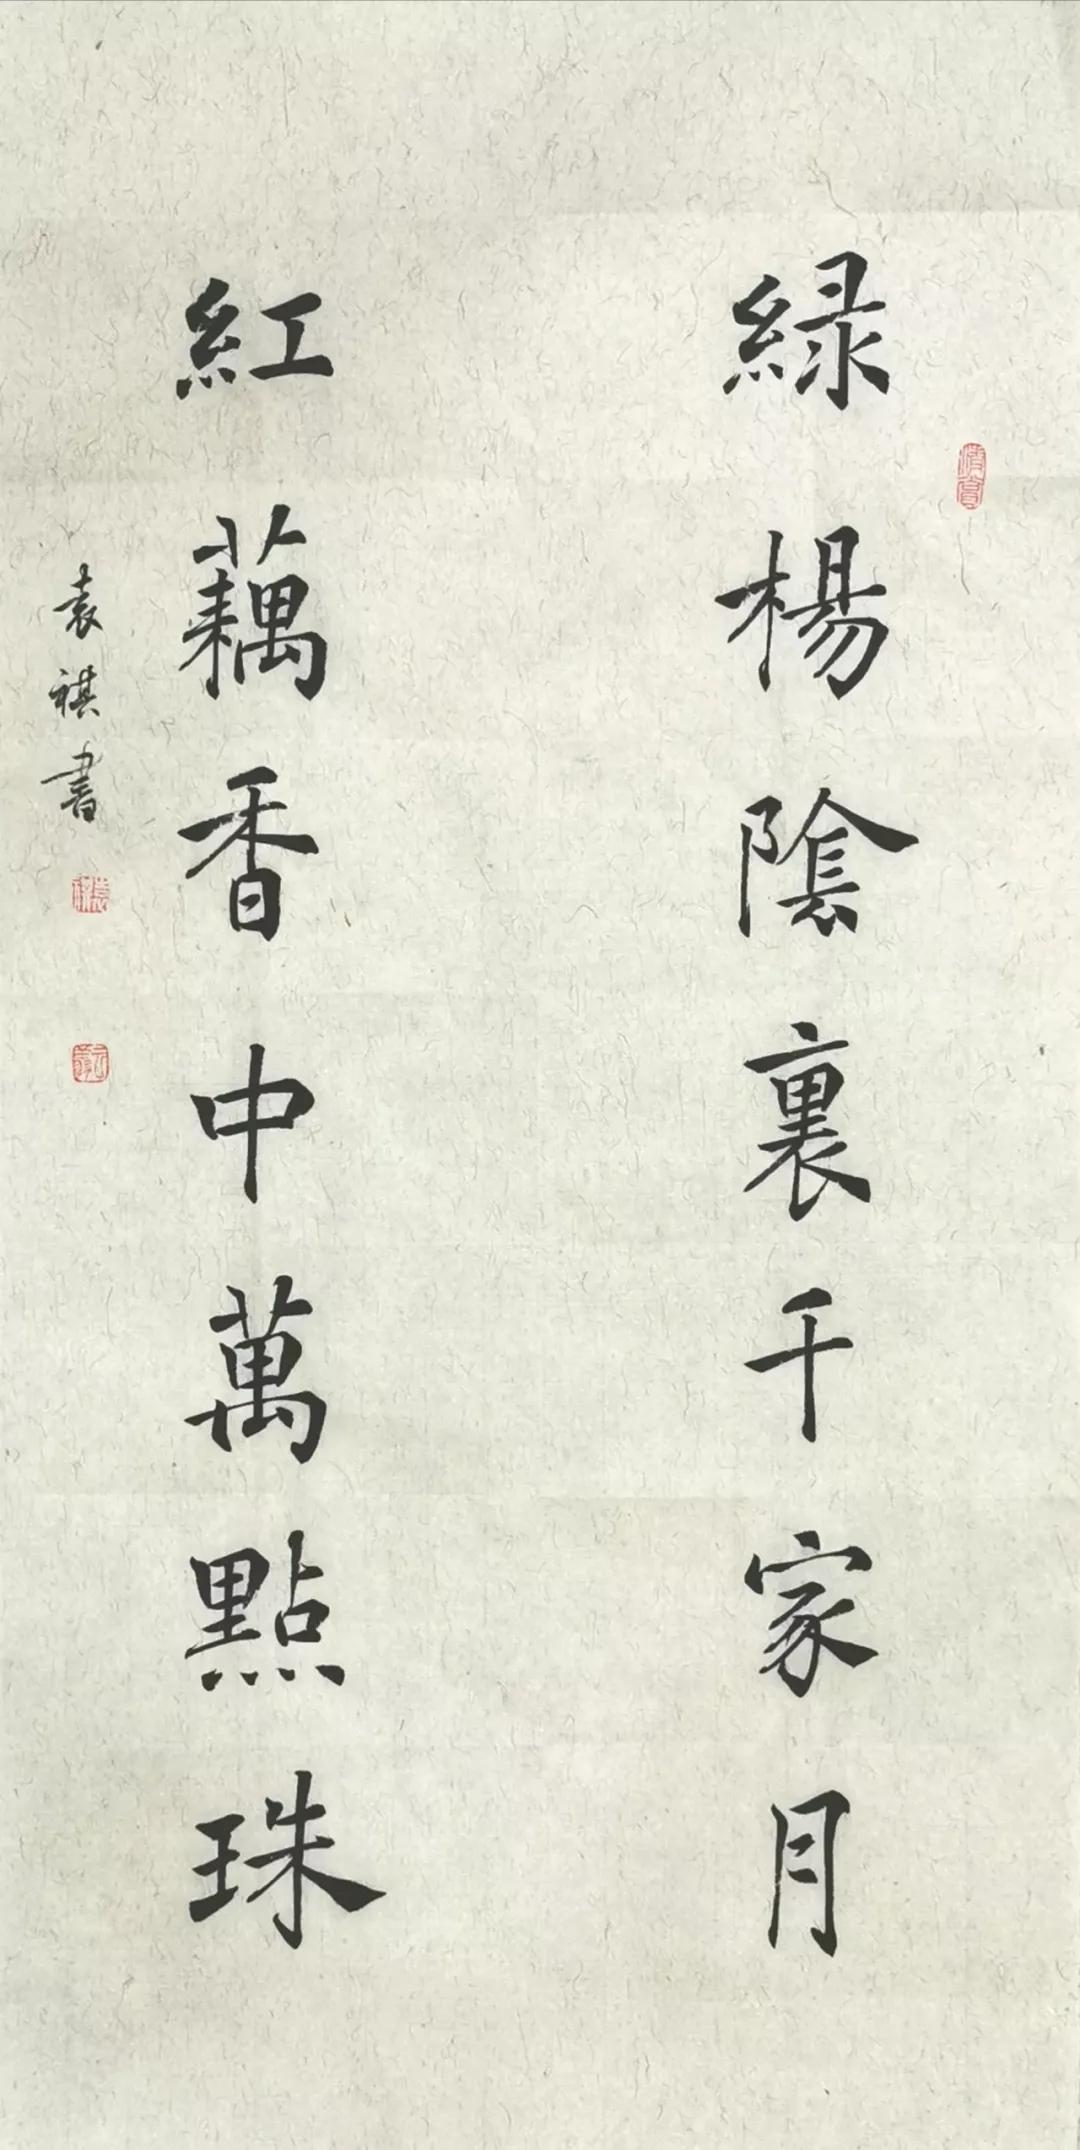 緑楊陰裏千家月
紅藕香中萬點珠
袁祺書